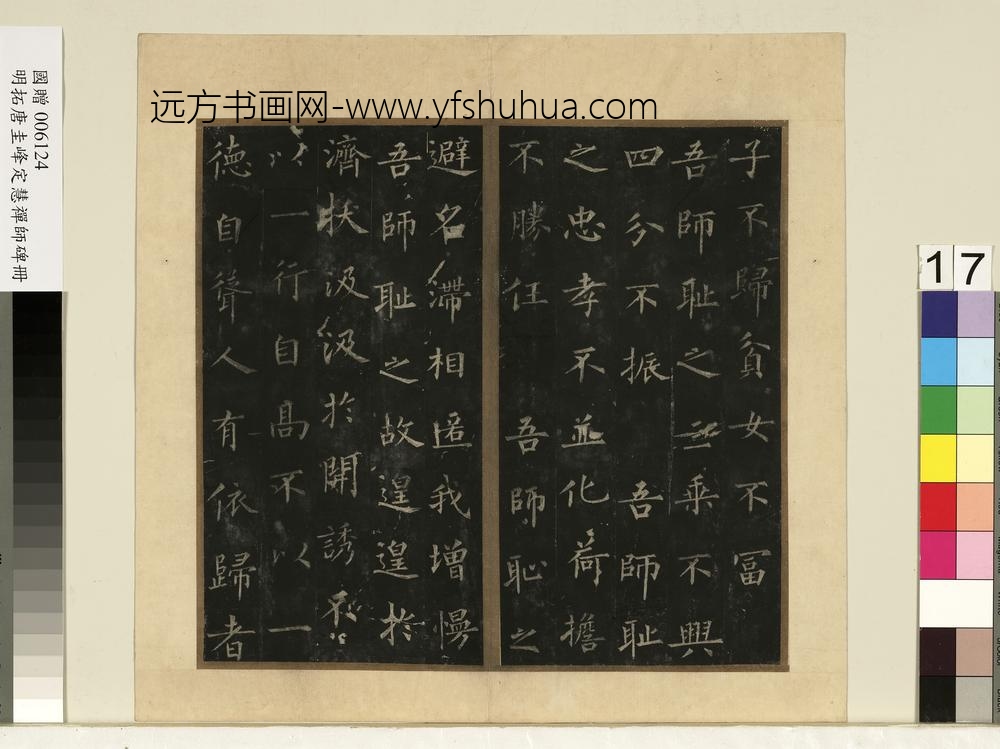 远方书画网-www.yfshuhua.com
國贈 006124
明拓唐圭峰定慧禪師碑冊
17
子不歸貧女不冨
吾師耻之三乗不興
四分不振 吾師耻
之忠孝不並化荷擔
不勝任 吾師恥之
避名滯相匿我增慢
吾師耻之故遑遑於
濟拔汲汲於開誘不
以一行自高不以一
德自聳人有依歸者